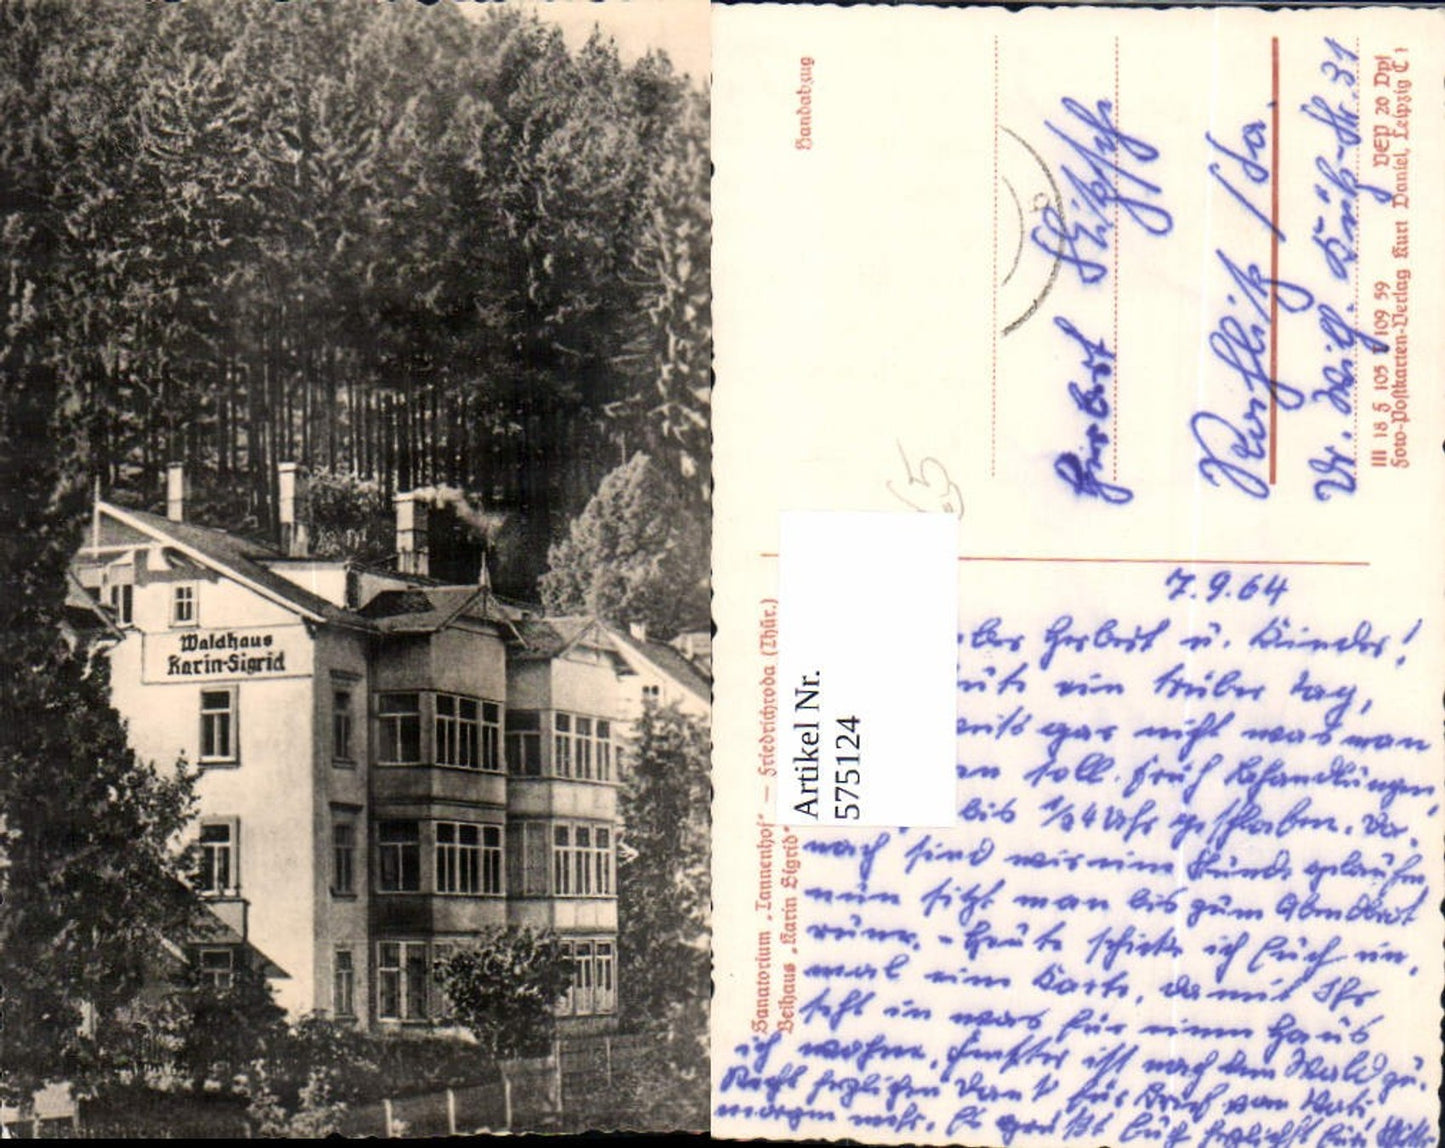 Waldhaus
Karin-Sigrid
Handabzug
Sanatorium „Tannenhof“ — Friedrichroda (Thür.)
Beihaus „Karin Sigrid“
Artikel Nr.
575124
65
Herbert
Rochlitz / Sa.
Dr. Wilh. Külz-Str. 31
III 18 5 105 109 59 VEP 20 Dpf
Foto-Postkarten-Verlag Kurt Daniel, Leipzig C 1
7.9.64
Herbert u. Kinder!
ein trüber Tag,
gar nicht was man
soll. Früh Behandlungen,
bis ½4 Uhr geschlafen. Da-
nach sind wir eine Runde gelaufen
nun sitzt man bis zum Abendbrot
rum. - Heute schicke ich Euch ein-
mal eine Karte, damit Ihr
seht in was für einem Haus
ich wohne, Fenster ist nach dem Wald zu.
Recht herzlichen Dank für Brief von Vati,
morgen mehr. Es grüßt Euch herzlichst